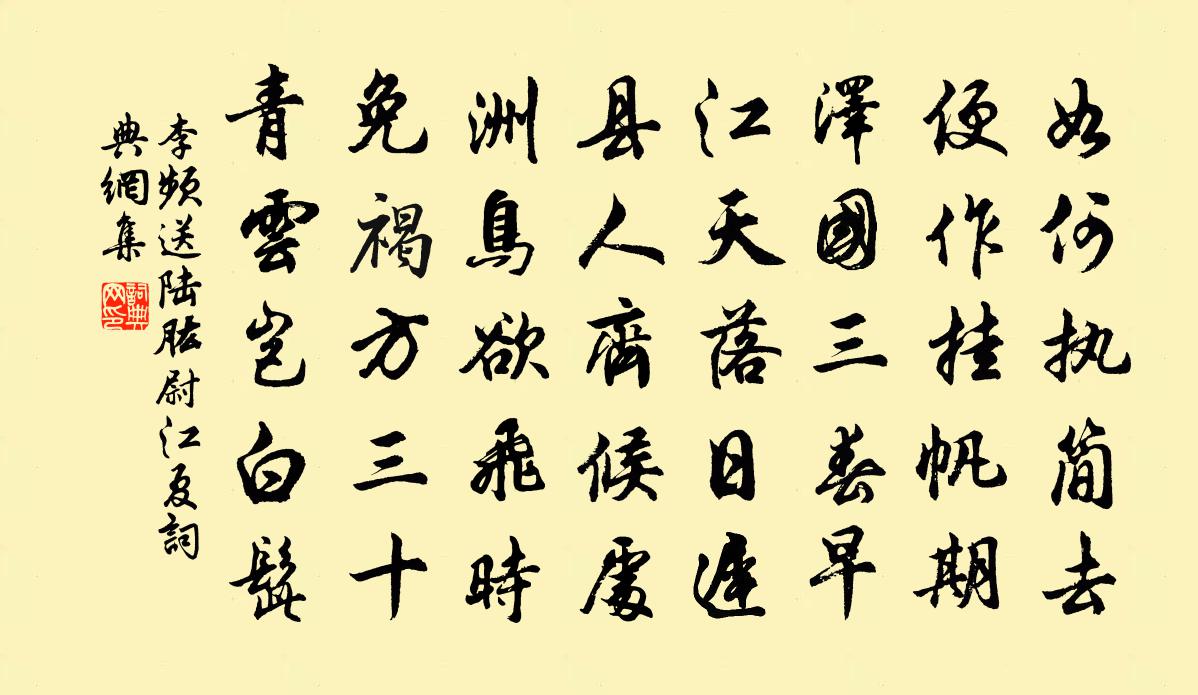 如何执简去
便作挂帆期
澤國三春早
江天落日遲
县人齊候處
洲鳥欲飛時
免褐方三十
青雲岂白髭
李频送陆肱尉江夏詞
典網集
詞典
网印